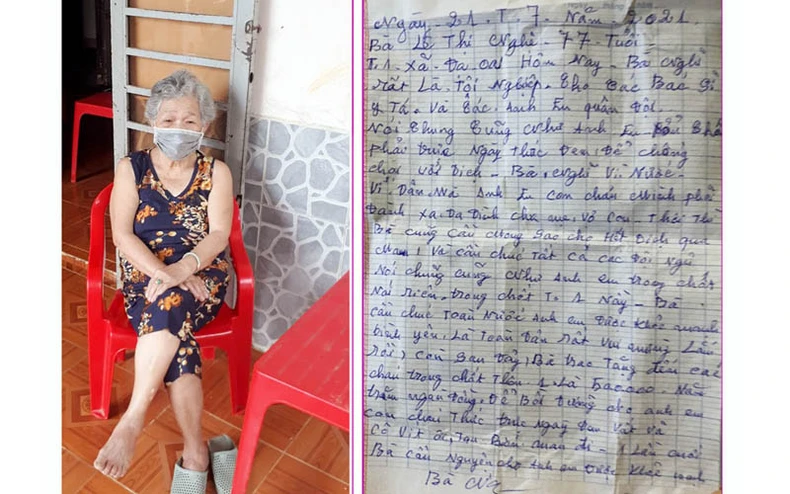 Ngày. 21. T. 7. Năm. 2021.
Bà Lê Thị Nghê - 77 Tuổi -
T.1. Xã. Đạ Oai Hôm Nay - Bà Nghĩ
Rất Là Tội Nghiệp. Cho Các Bác Sỉ
y Tá. Và Các. Anh Em quân Đội.
Nói Chung Cũng Như Anh Em
phải Trực Ngày Thức Đêm, Để chống
chọi với Dịch - Bà, Nghĩ Vì Nước -
Vì Dân, Mà Anh Em con cháu Mình phải
Đành Xa, Da Đình cha mẹ, Vợ Con - Thôi Thì
Bà Cũng Cầu Mong Sao cho Hết Dịch qua
Và cầu chúc Tất Cả các Đội Ngũ
Nói chung cũng như Anh em trong chốt
Nói Riêng, trong chốt T. 1 Này - Bà
cầu chúc Toàn Nước Anh em Được Khỏe mạnh
bình yên, Là Toàn Dân Rất Vui mừng Lắm
Rồi, Còn Sau Đây, Bà Trao Tặng đến các
cháu trong chốt Thôn 1 Là 500.000. Năm
trăm ngàn Đồng, Để Bồi Dưỡng cho anh em
con cháu Thức Trực Ngày Đêm Vất Vả
Cô Vít ơi, Tan Biến Mau đi - 1 Lần cuối
Bà Cầu Nguyện cho Anh em Được Khỏe mạnh
Bà